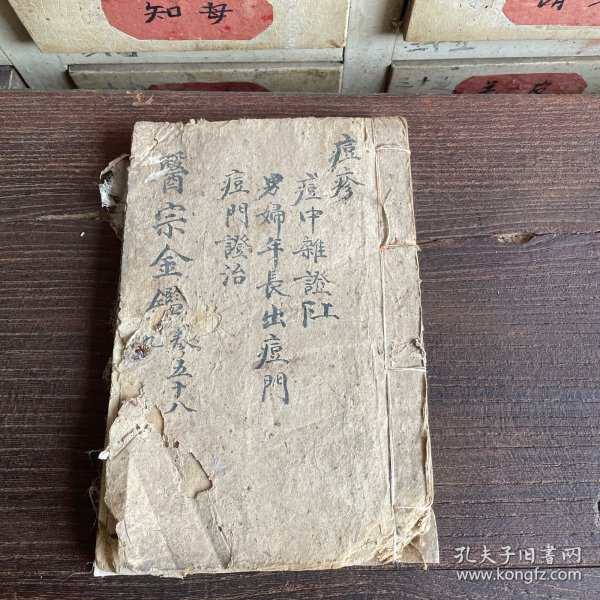 知母
痘疹
痘中雜證上下
男婦年長出痘門
痘門證治
醫宗金鑑卷五十八
九
孔夫子旧书网
www.kongfz.com